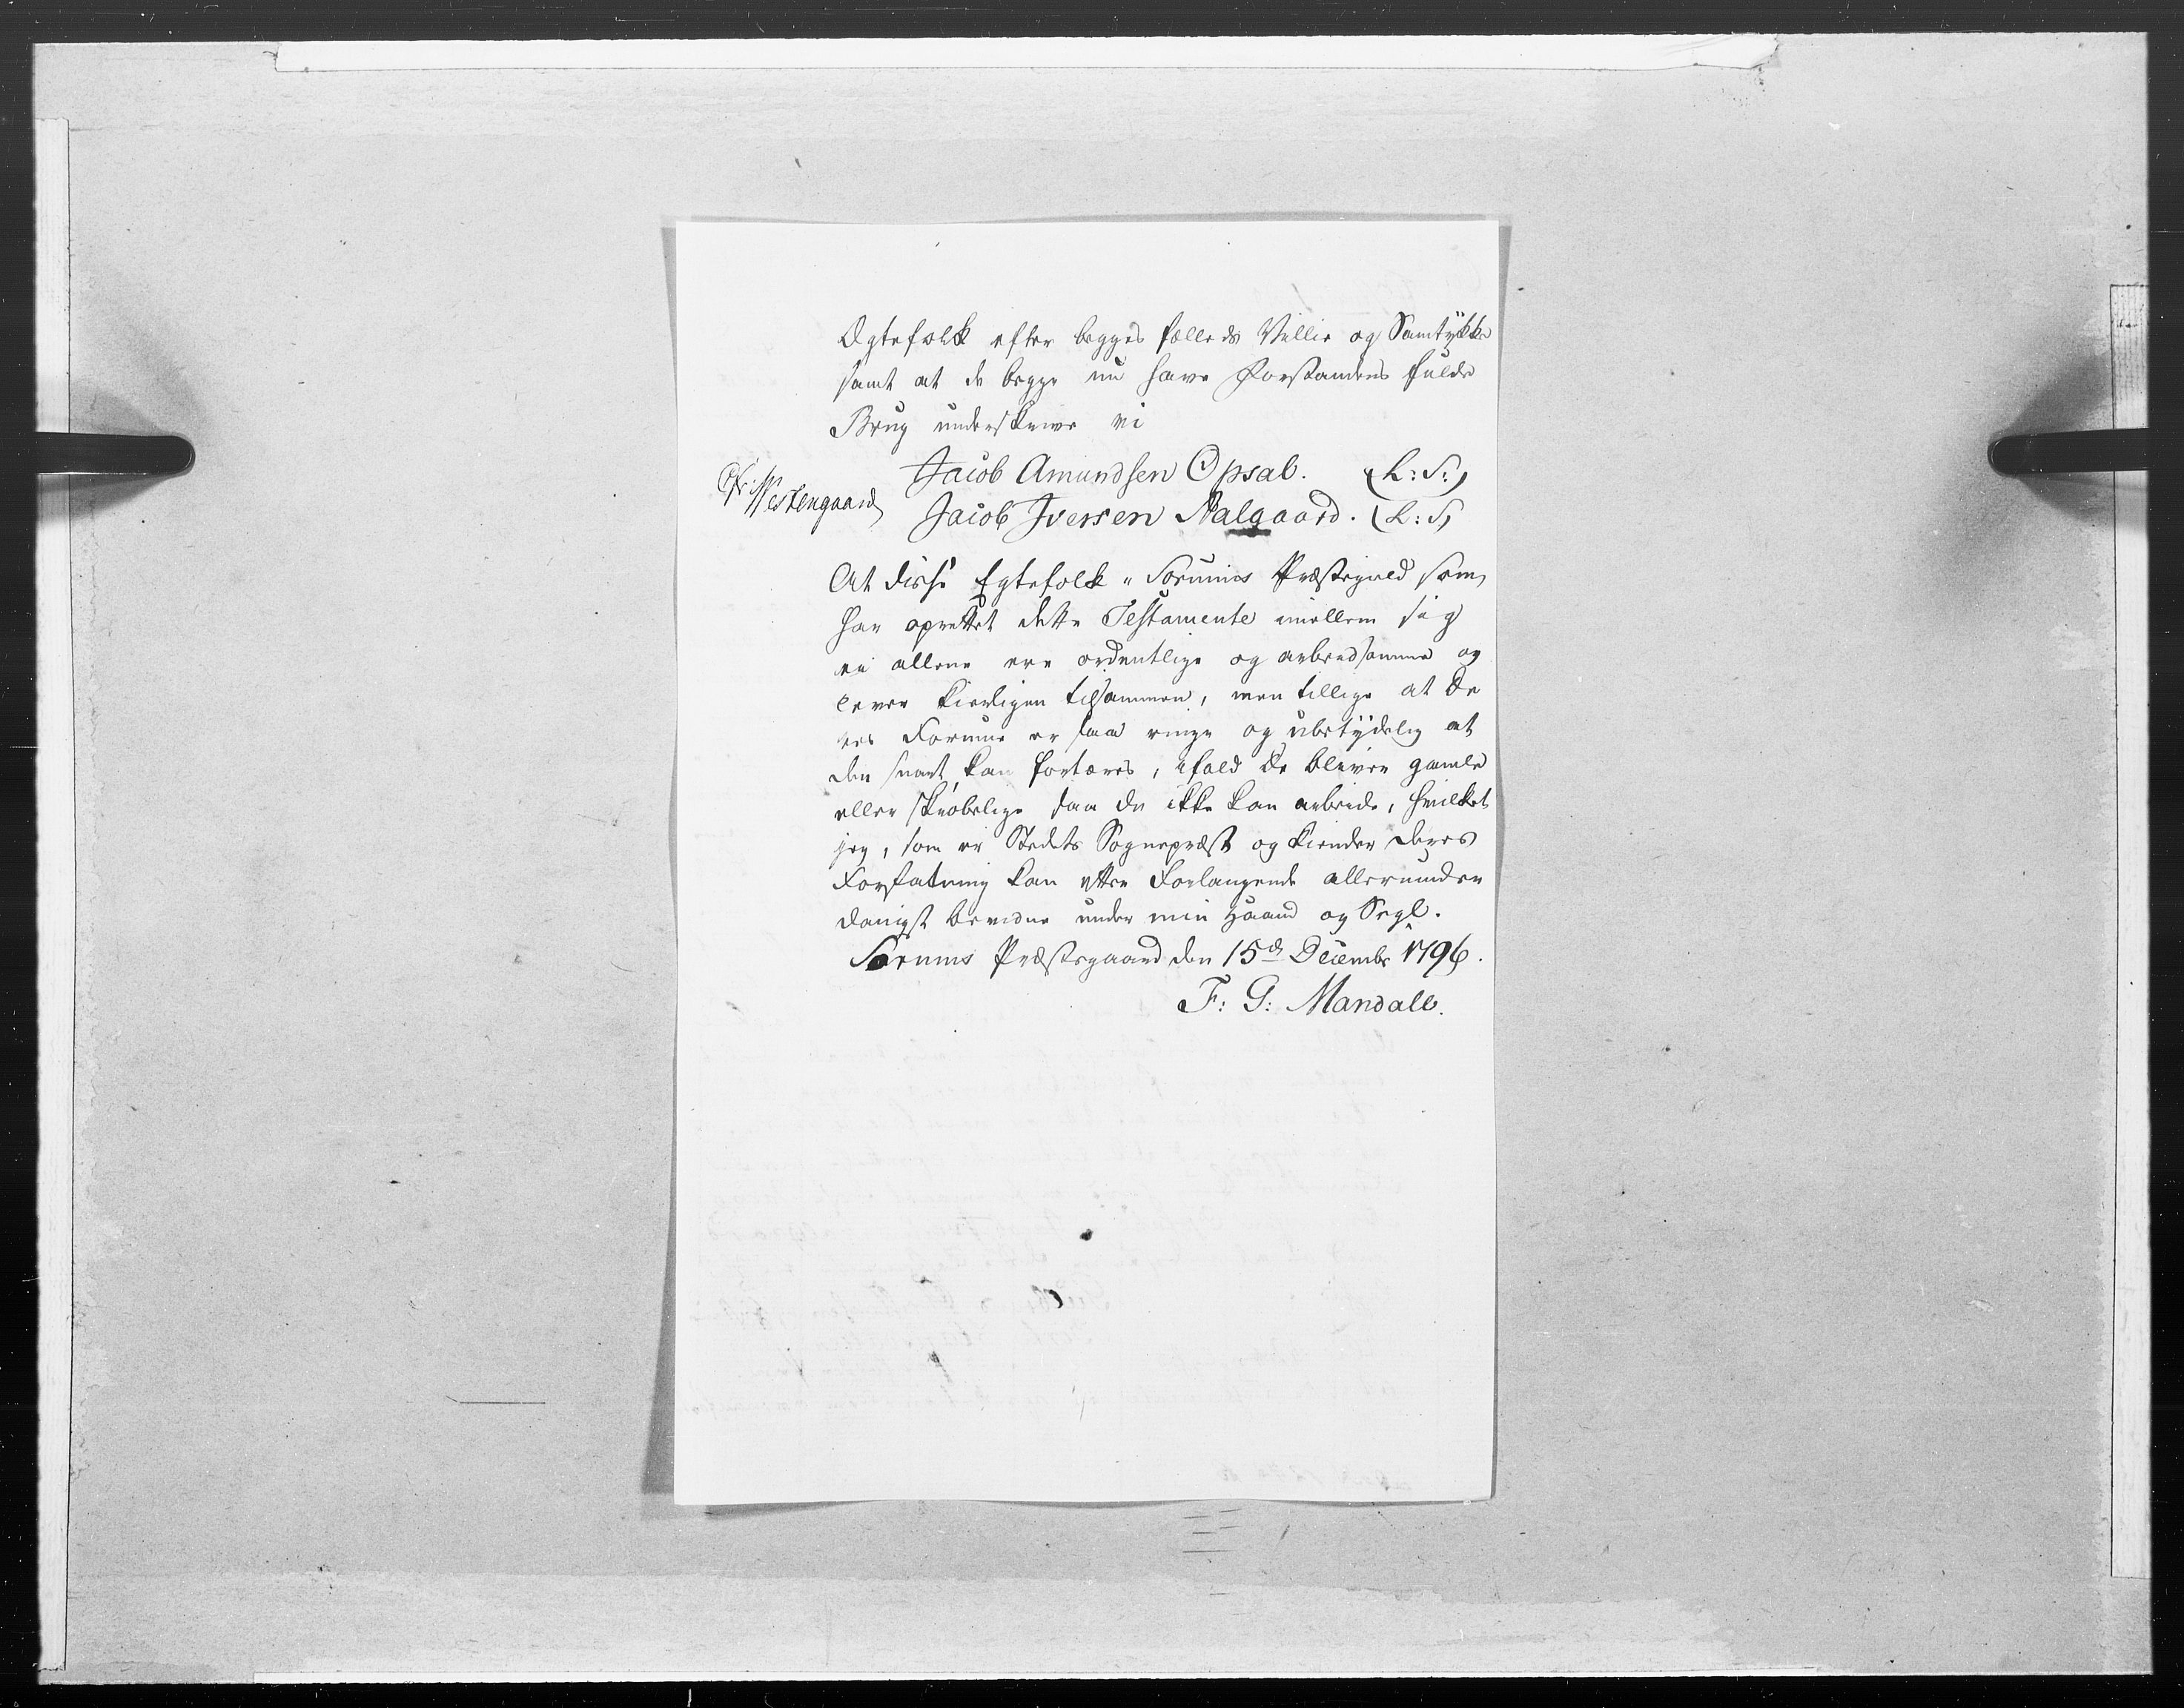 Ægtefolk efter begges fælleds Villie og Samtykke
samt at de begge nu have Forstandens fulde
Brug underskrive vi
Jacob Amundsen Opsal. (L: S:)
Westengaard
Jacob Iversen Aalgaard. (L: S)
At disse Egtefolk i Sørums Præstegield som
har oprettet dette Testamente imellem sig
ei allene ere ordentlige og arbeidsomme og
lever kierligen tilsammen, men tillige at De
res Formue er saa ringe og ubetydelig at
den snart kan fortæres, ifald De bliver gamle
eller skrøbelige saa de ikke kan arbeide, hvilket
jeg, som er Stedets Sognepræst og kiender deres
Forfatning kan efter Forlangende allerunder
danigst bevidne under min Haand og Segl.
Sørums Præstegaard den 15de Decembr 1796.
F: G: Mandall.